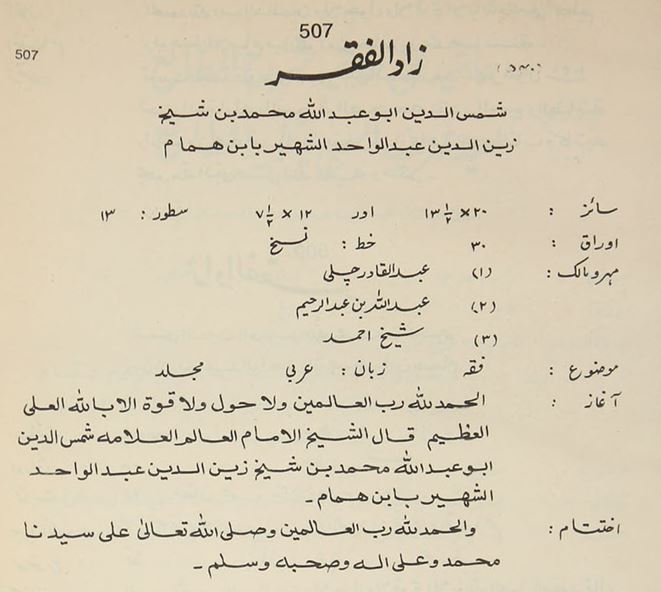 507
507
زاد الفقر (۵۳۰)
شمس الدين ابو عبد الله محمد بن شيخ
زين الدين عبد الواحد الشهير بابن همام
سائز : ۲۰ × ۱۳ ۱/۲ اور ۱۲ × ۷ ۱/۲ سطور : ۱۳
اوراق : ۳۰ خط : نسخ
مہر و مالک : (۱) عبد القادر چلپی
(۲) عبد الله بن عبد الرحيم
(۳) شیخ احمد
موضوع : فقہ زبان : عربی مجلد
آغاز : الحمد لله رب العالمين ولا حول ولا قوة الا بالله العلى
العظيم قال الشيخ الامام العالم العلامه شمس الدين
ابو عبد الله محمد بن شيخ زين الدين عبد الواحد
الشهير بابن همام ۔
اختتام : والحمد لله رب العالمين وصلى الله تعالىٰ على سيدنا
محمد وعلى اله وصحبه وسلم ۔